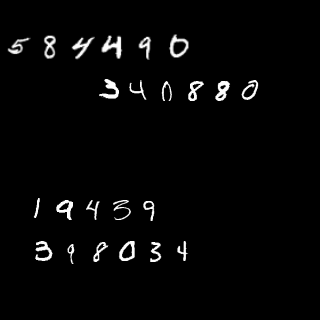 584490
340880
19439
398034